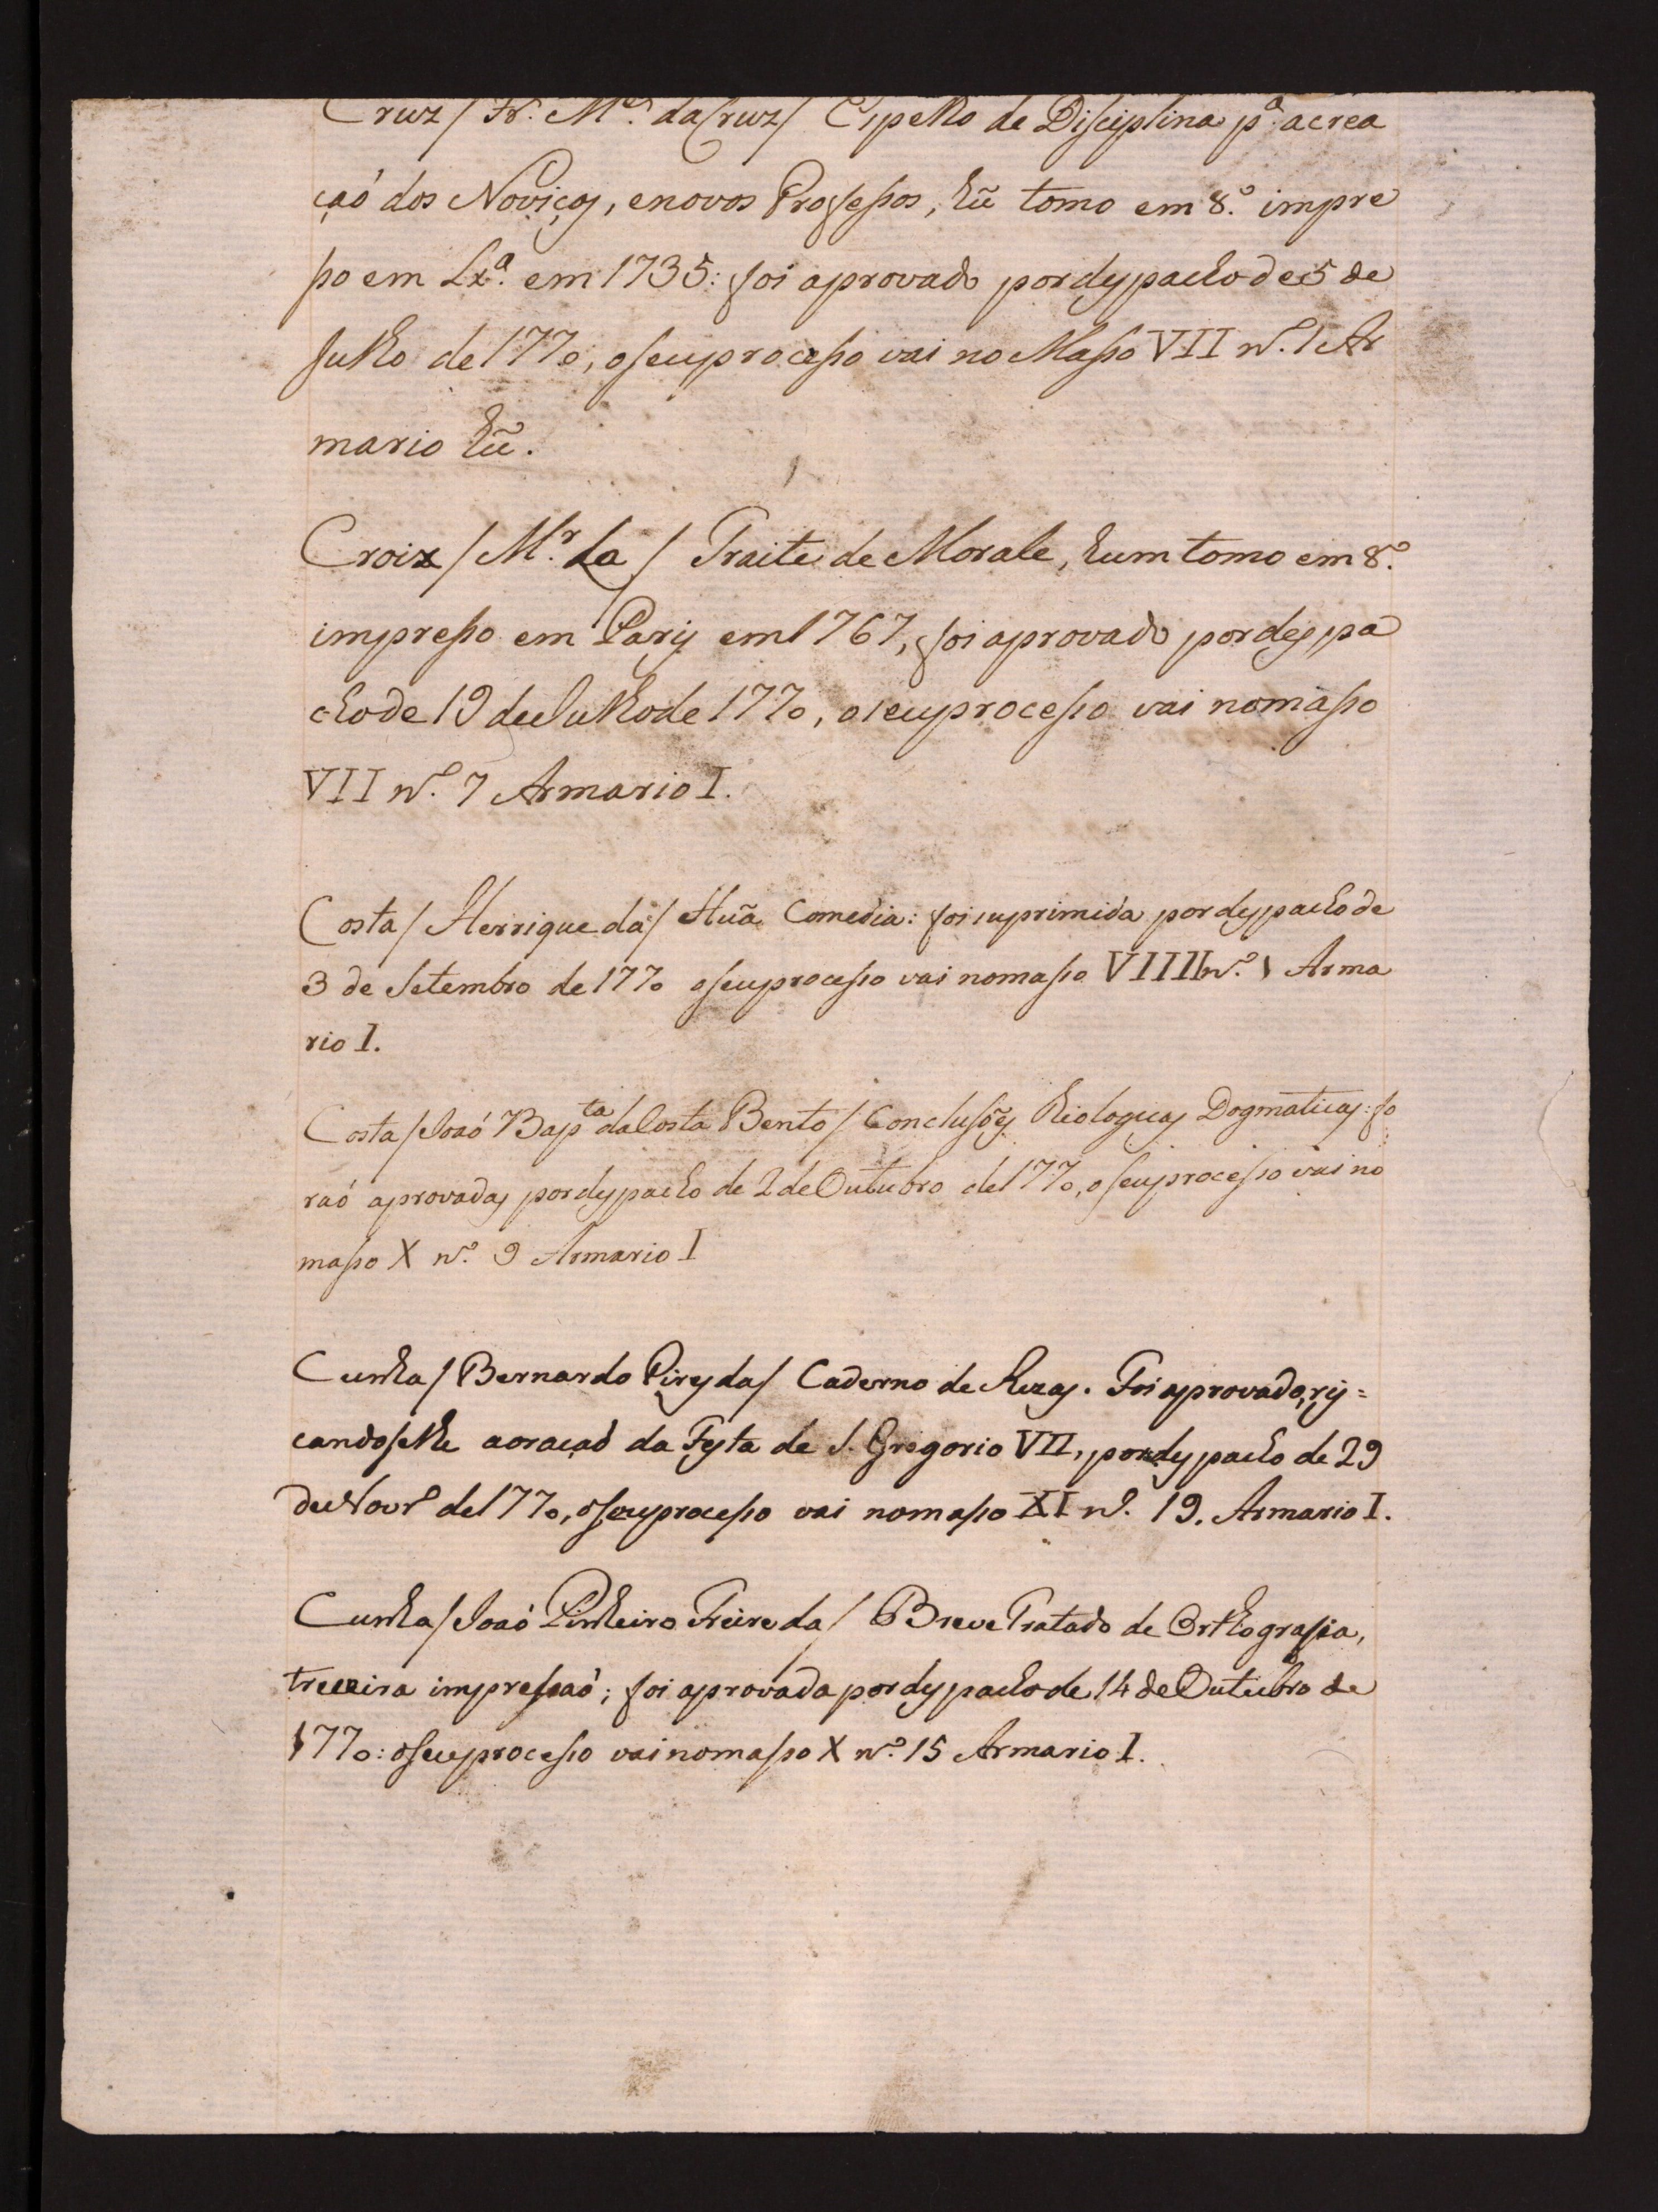 Cruz / Fr. M.el da Cruz / Espelho de Disciplina p.ª a crea
çaó dos Noviços, e novos Professos, hũ tomo em 8.º impre
sso em Lx.ª em 1735: foi aprovado por despacho de 5 de
Julho de 1770, o seu processo vai no Masso VII n.º 1 Ar
mario hũ.
Croix / M.r La / Traite de Morale, hum tomo em 8.º
impresso em Paris em 1767, foi aprovado por despa
cho de 19 de Julho de 1770, o seu processo vai no masso
VII n.º 7 Armario I.
Costa / Henrique da / Huã Comedia: foi suprimida por despacho de
3 de Setembro de 1770 o seu processo vai no masso VIIII n.º 1 Arma
rio I.
Costa / Joaó Bap.ta da Costa Bento / Conclusões Theologicas Dogmaticas: fo
raó aprovadas por despacho de 2 de Outubro de 1770, o seu processo vai no
masso X n.º 9 Armario I
Cunha / Bernardo Pires da / Caderno de Rezas. Foi aprovado, ris=
candoselhe a oraçaó da Festa de S. Gregorio VII, por despacho de 29
de Nov.º de 1770, o seu processo vai no masso XI n.º 19. Armario I.
Cunha / Joaó Pinheiro Freire da / Breve Tratado de Orthografia,
treceira impressaó; foi aprovada por despacho de 14 de Outubro de
1770: o seu processo vai no masso X n.º 15 Armario I.